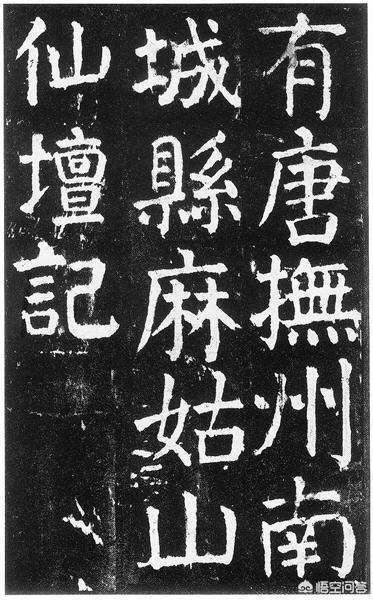 有唐撫州南
城縣麻姑山
仙壇記
悟空问答